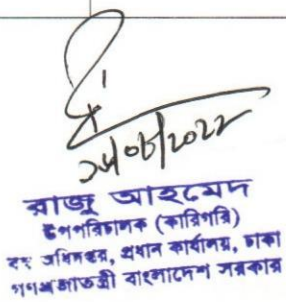 রাজু আহমেদ
উপপরিচালক (কারিগরি)
বস্ত্র অধিদপ্তর, প্রধান কার্যালয়, ঢাকা
গণপ্রজাতন্ত্রী বাংলাদেশ সরকার